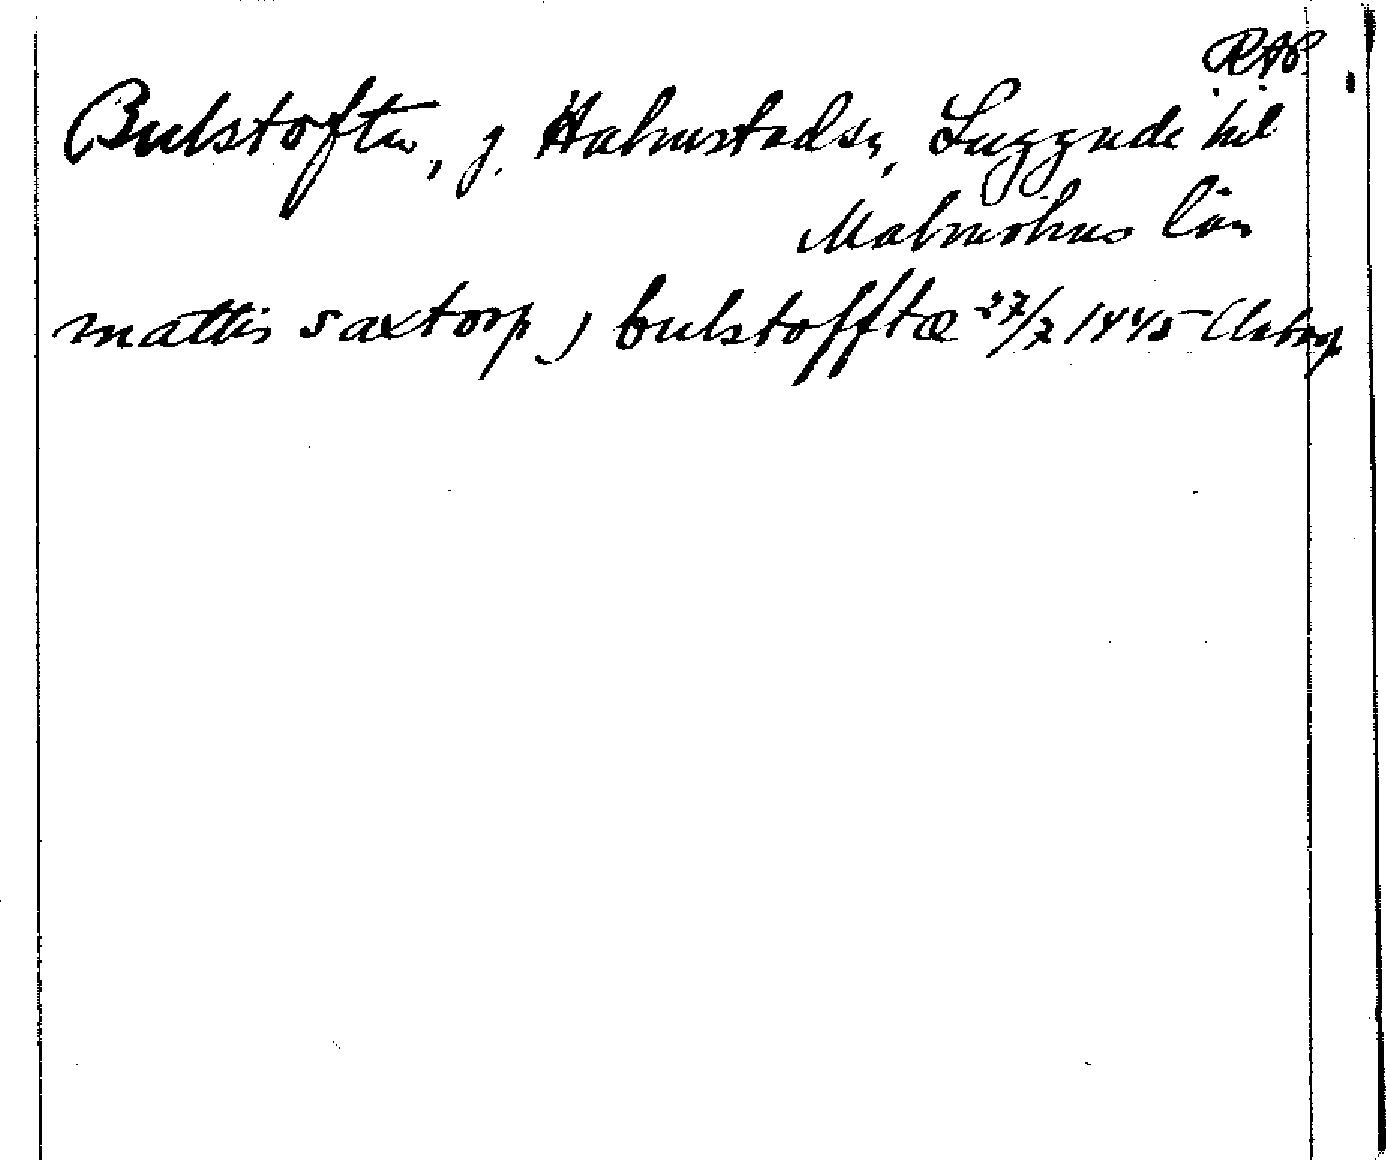 RAP
Bulstofta, g. Halmstads sn, Luggude hd
Malmöhus län
mattis saxtorp j bulstofftæ 27/7 1445 Åstorp